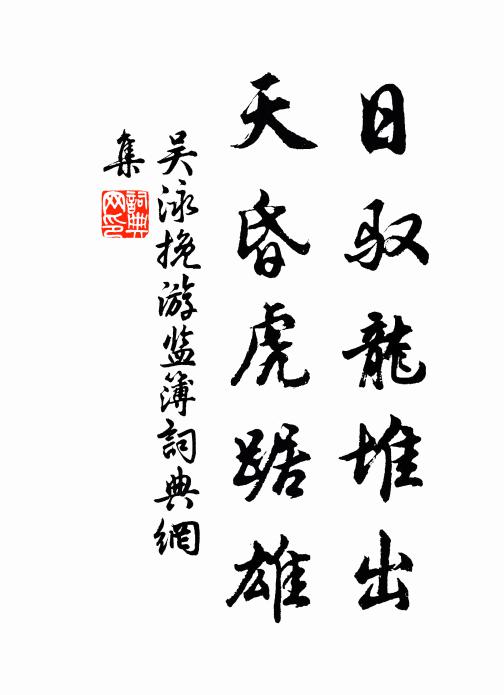 日驭龍堆出
天昏虎踞雄
吴泳挽游监簿詞典網
集
詞典
网印